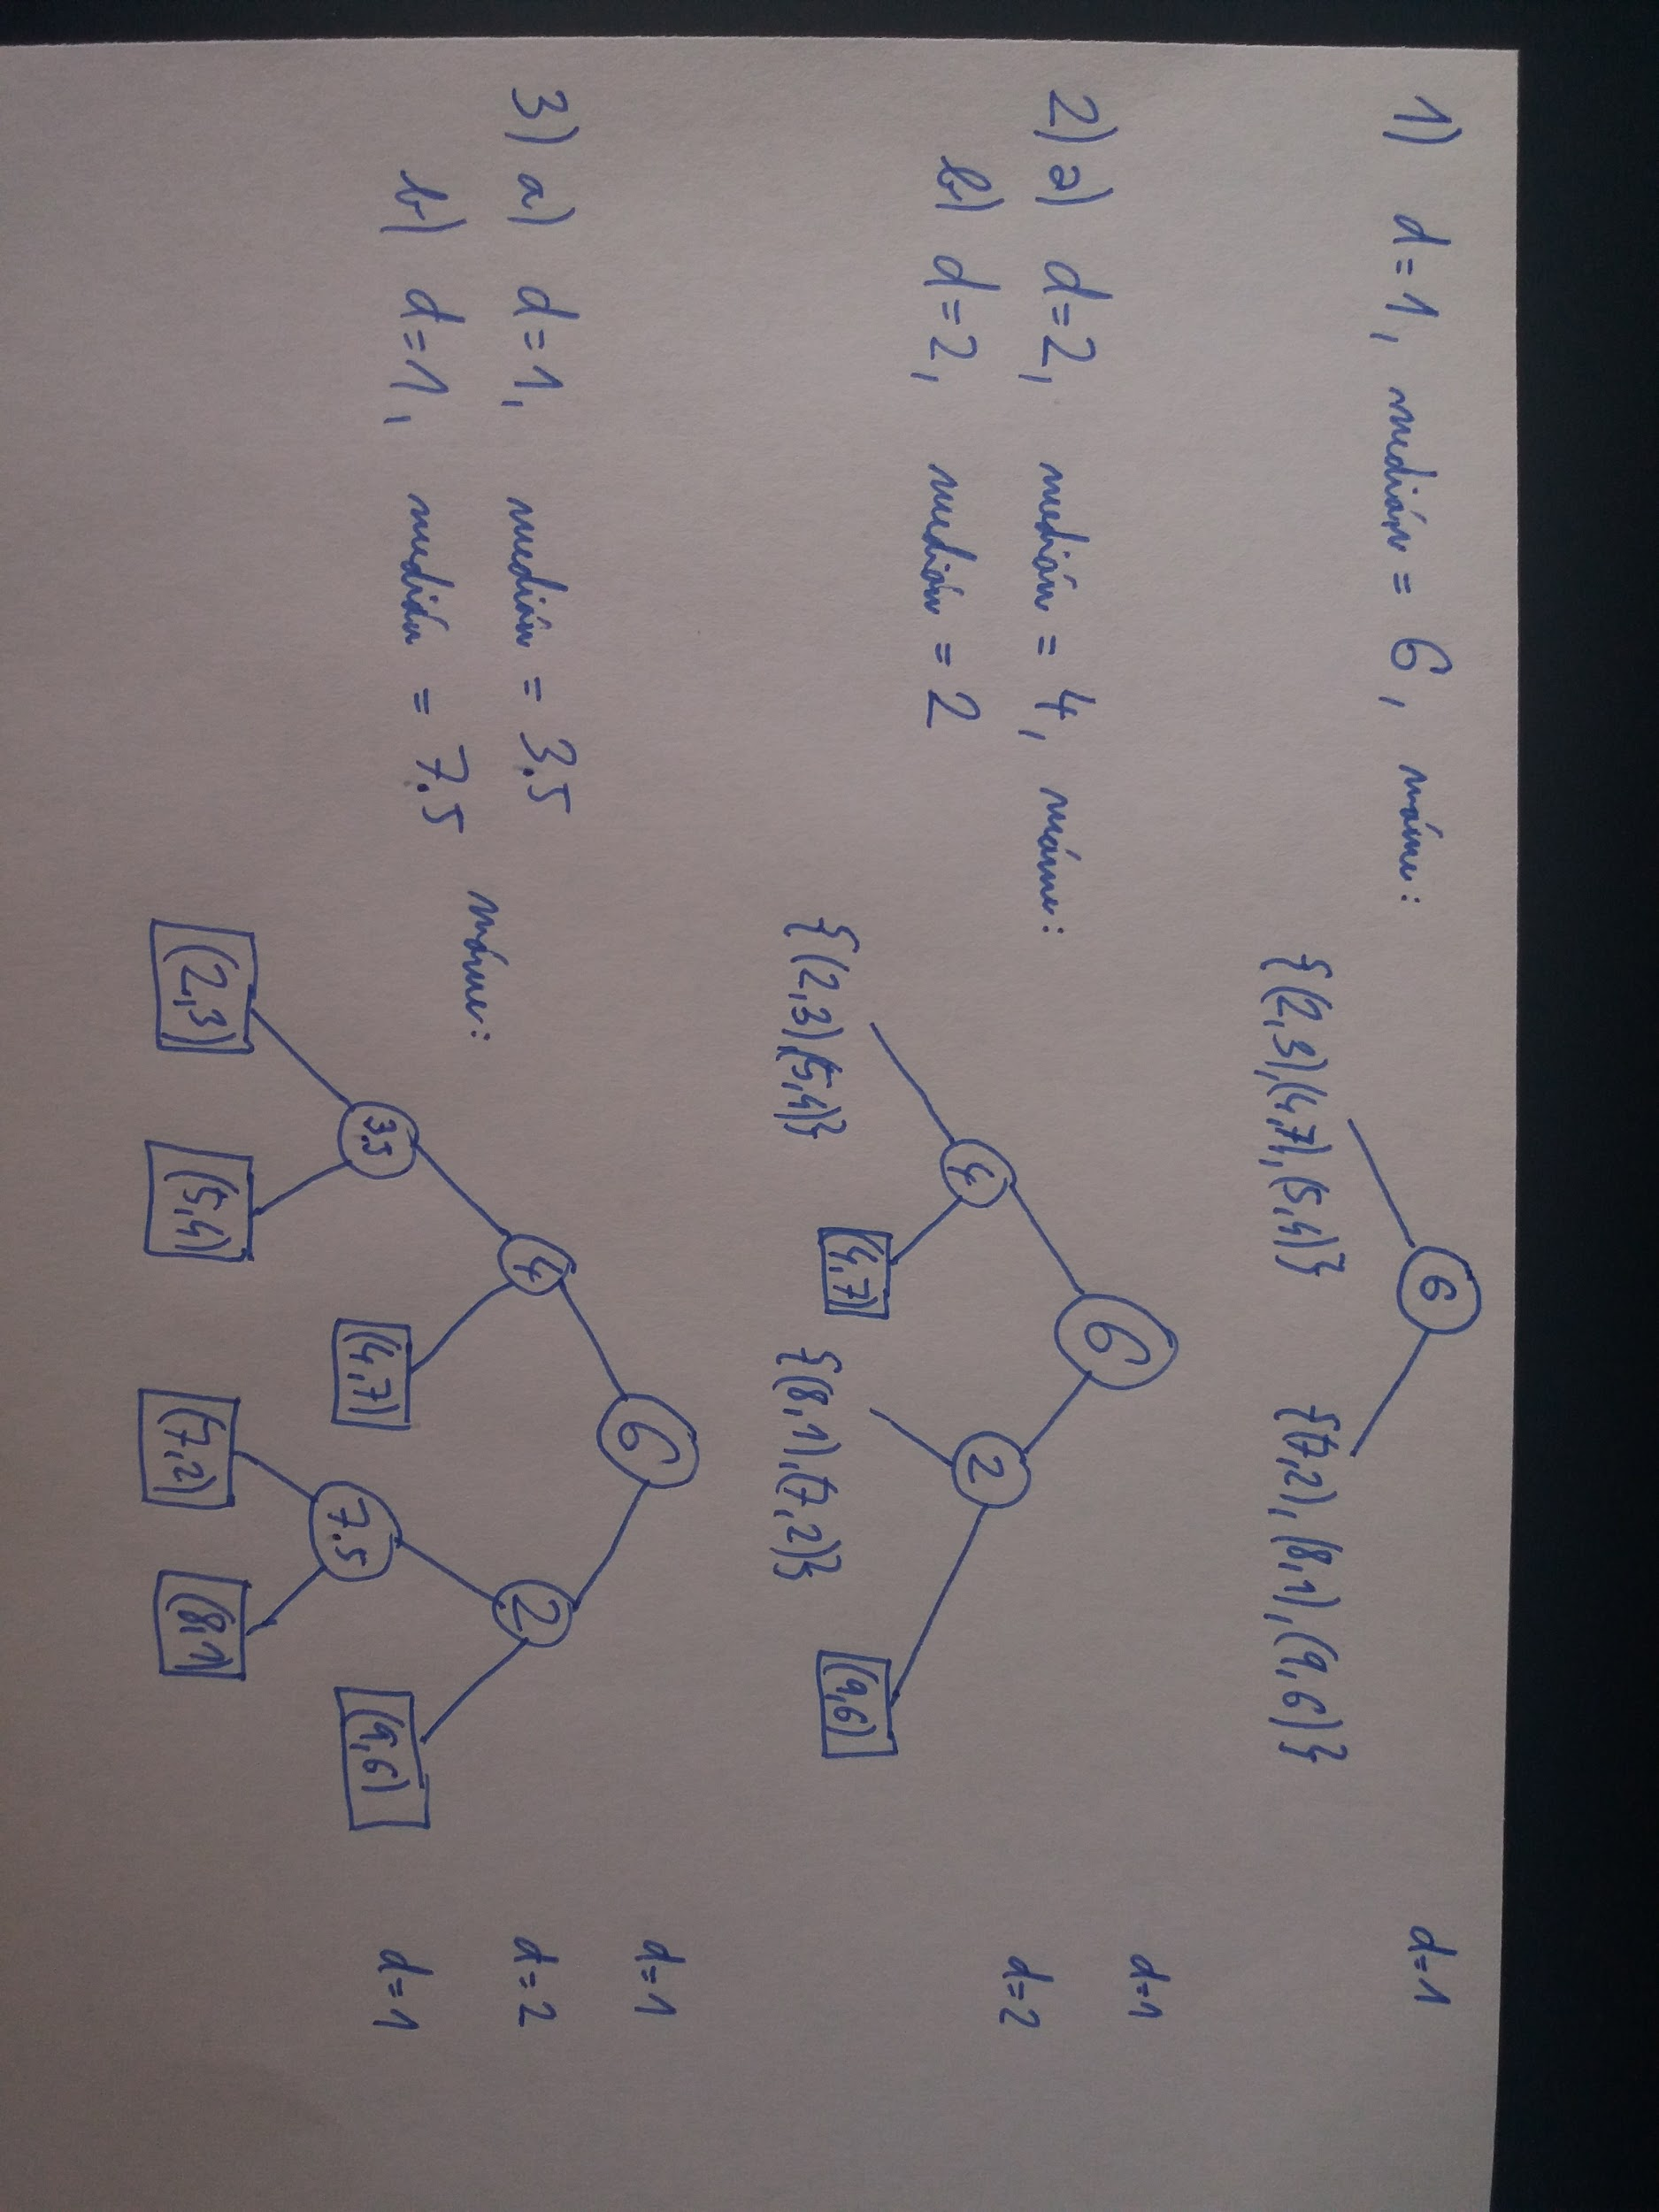 1) d=1, medián = 6, máme:
6
d=1
{(2,3),(4,7),(5,4)}
{(7,2),(8,1),(9,6)}
2) a) d=2, medián = 4, máme:
b) d=2, medián = 2
6
d=1
4
2
d=2
{(2,3),(5,4)}
(4,7)
{(8,1),(7,2)}
(9,6)
3) a) d=1, medián = 3.5
b) d=1, medián = 7.5
máme:
6
d=1
4
2
d=2
3,5
(4,7)
7.5
(9,6)
d=1
(2,3)
(5,4)
(7,2)
(8,1)